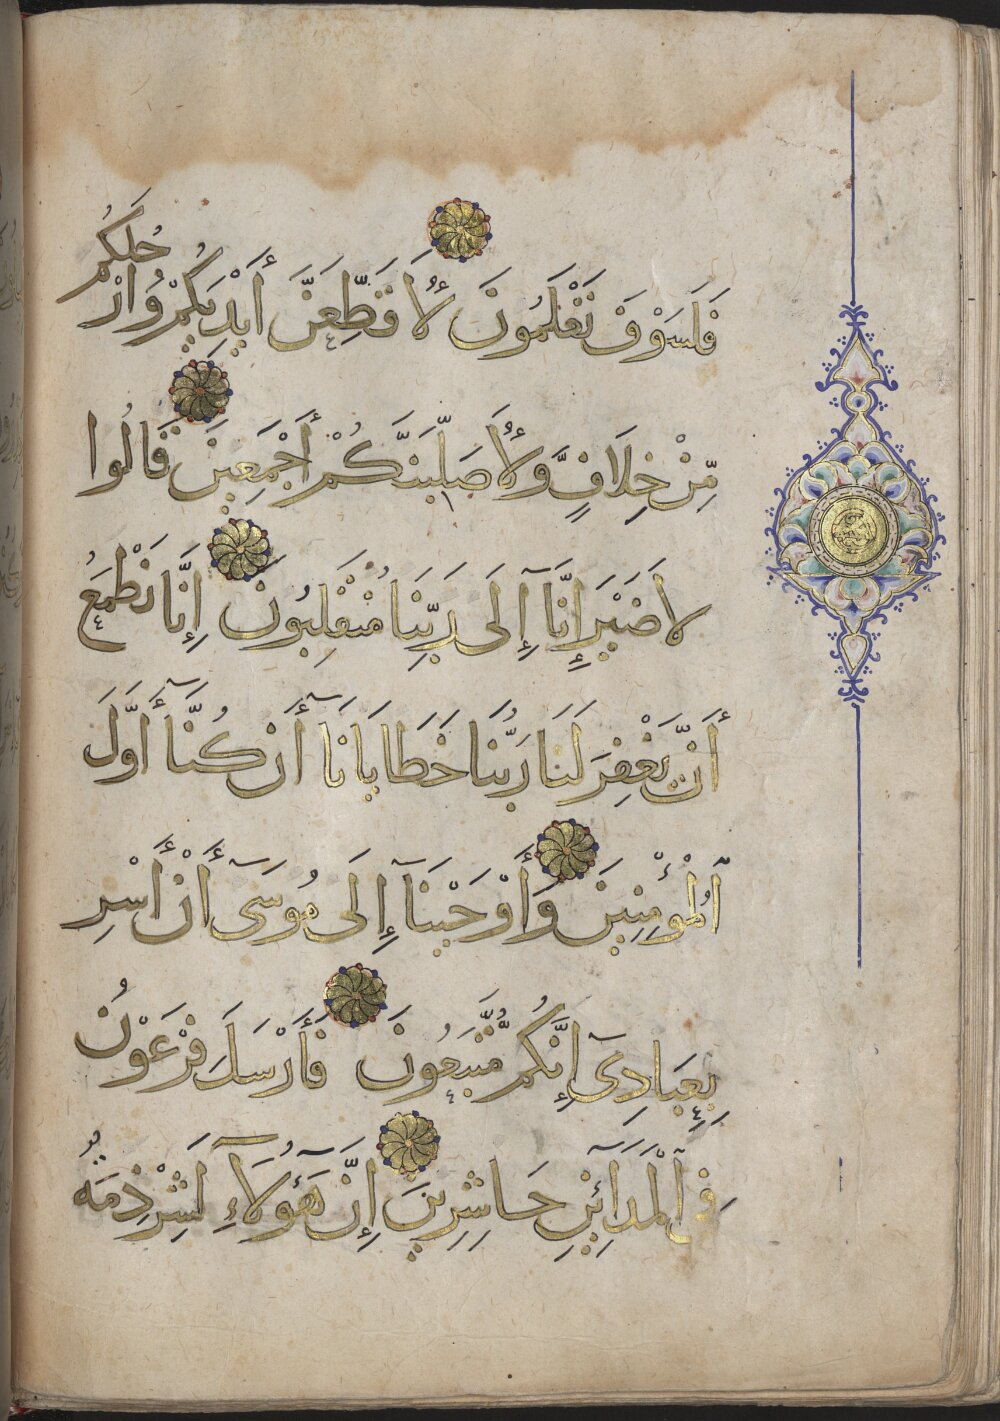 فَلَسَوْفَ تَعْلَمُونَ لَأُقَطِّعَنَّ أَيْدِيَكُمْ وَأَرْجُلَكُم
مِّنْ خِلَافٍ وَّلَأُصَلِّبَنَّكُمْ أَجْمَعِينَ قَالُوا
لَا ضَيْرَ إِنَّآ إِلَى رَبِّنَا مُنْقَلِبُونَ إِنَّا نَطْمَعُ
أَنْ يَّغْفِرَ لَنَا رَبُّنَا خَطَايَانَآ أَنْ كُنَّآ أَوَّلَ
ٱلْمُؤْمِنِينَ وَأَوْحَيْنَآ إِلَى مُوسَىٓ أَنْ أَسْرِ
بِعِبَادِىٓ إِنَّكُمْ مُّتَّبَعُونَ فَأَرْسَلَ فِرْعَوْنُ
فِى ٱلْمَدَآئِنِ حَاشِرِينَ إِنَّ هَٓؤُلَآءِ لَشِرْذِمَةٌ